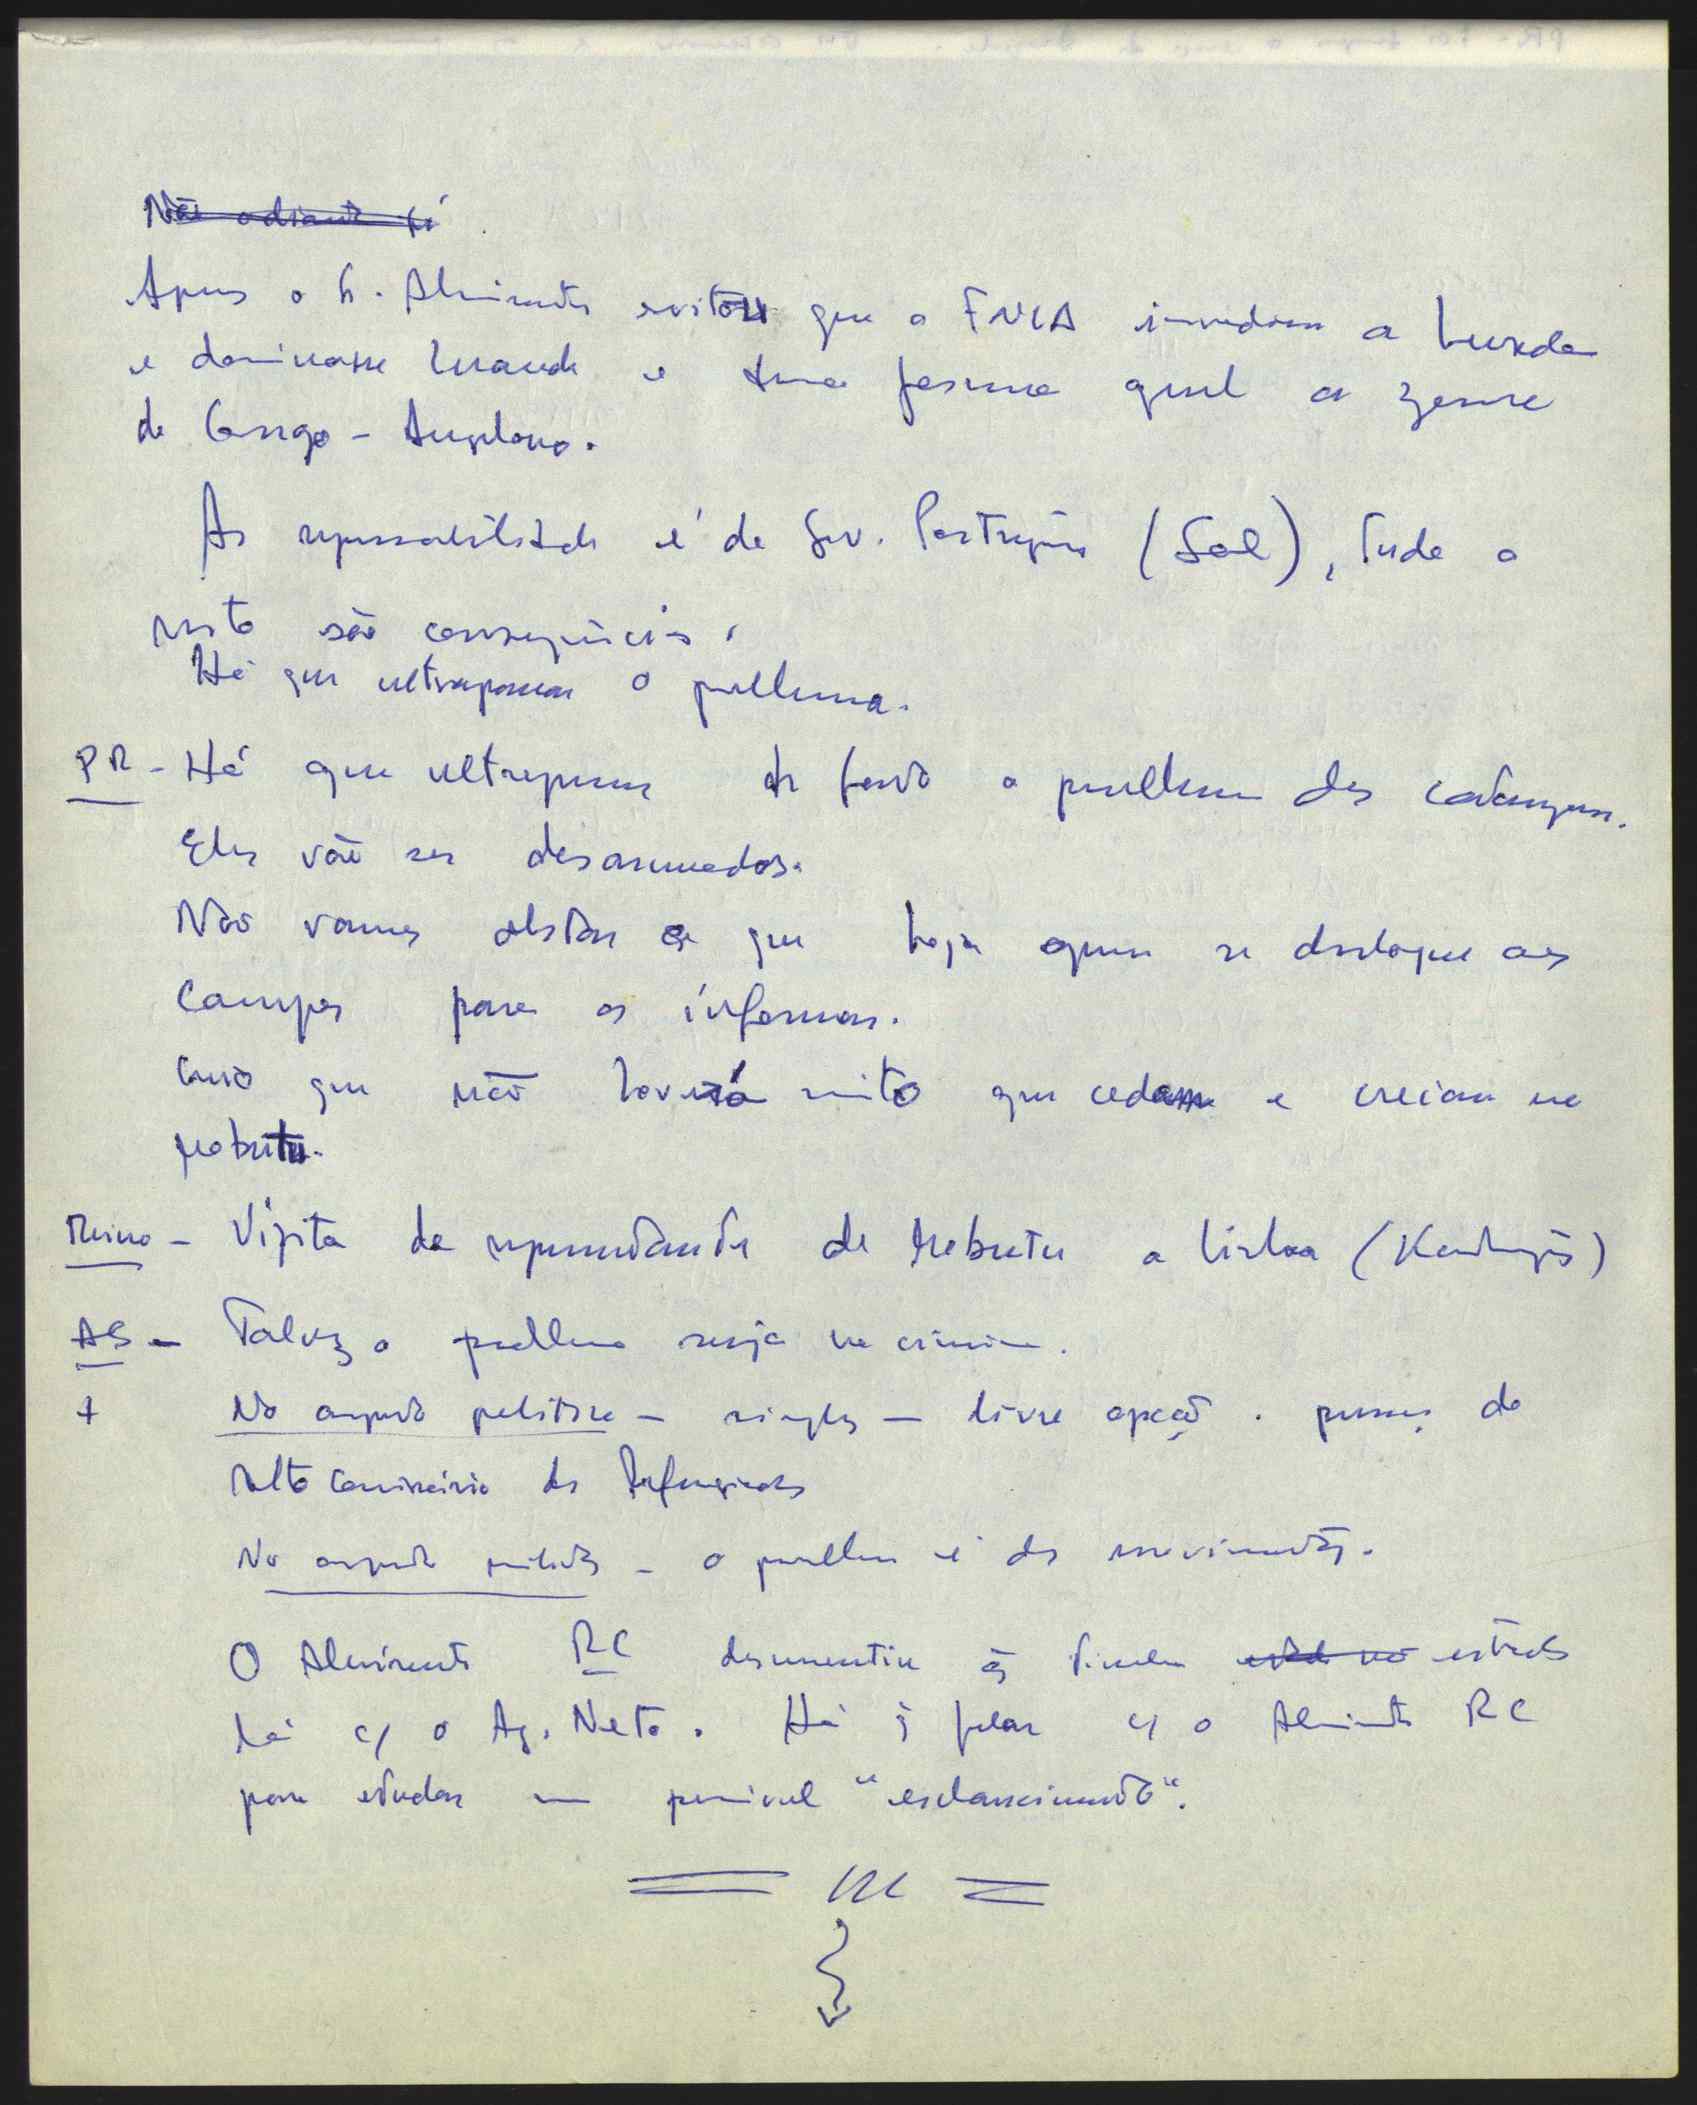 ~~Não adiante~~
Apenas o h. Almirante evitou que a FNLA invadisse a Lunda
e dominasse Luanda e duma forma geral a zona
do Congo - Angolano.
As responsabilidade é do Gov. Português (Sal), tudo o
resto são consequências.
Há que ultrapassar o problema.
PR - Há que ultrapassar de facto o problema dos catangueses.
Eles vão ser desarmados.
Não vamos obstar a que haja quem se desloque aos
campos para os informar.
Creio que não haverá muito que cedam e creiam no
Mobutu.
- Visita do representante de Mobutu a Lisboa
AS - Talvez o problema seja na origem.
+ No aspecto político - simples - livre opção. presença do
Alto Comissário dos Refugiados
No aspecto militar - o problema é dos movimentos.
O Almirante RC desmentiu q tivesse ~~estado no~~ estado
lá c/ o Ag. Neto. Há q falar c/ o Almirante RC
para estudar um possível "esclarecimento".